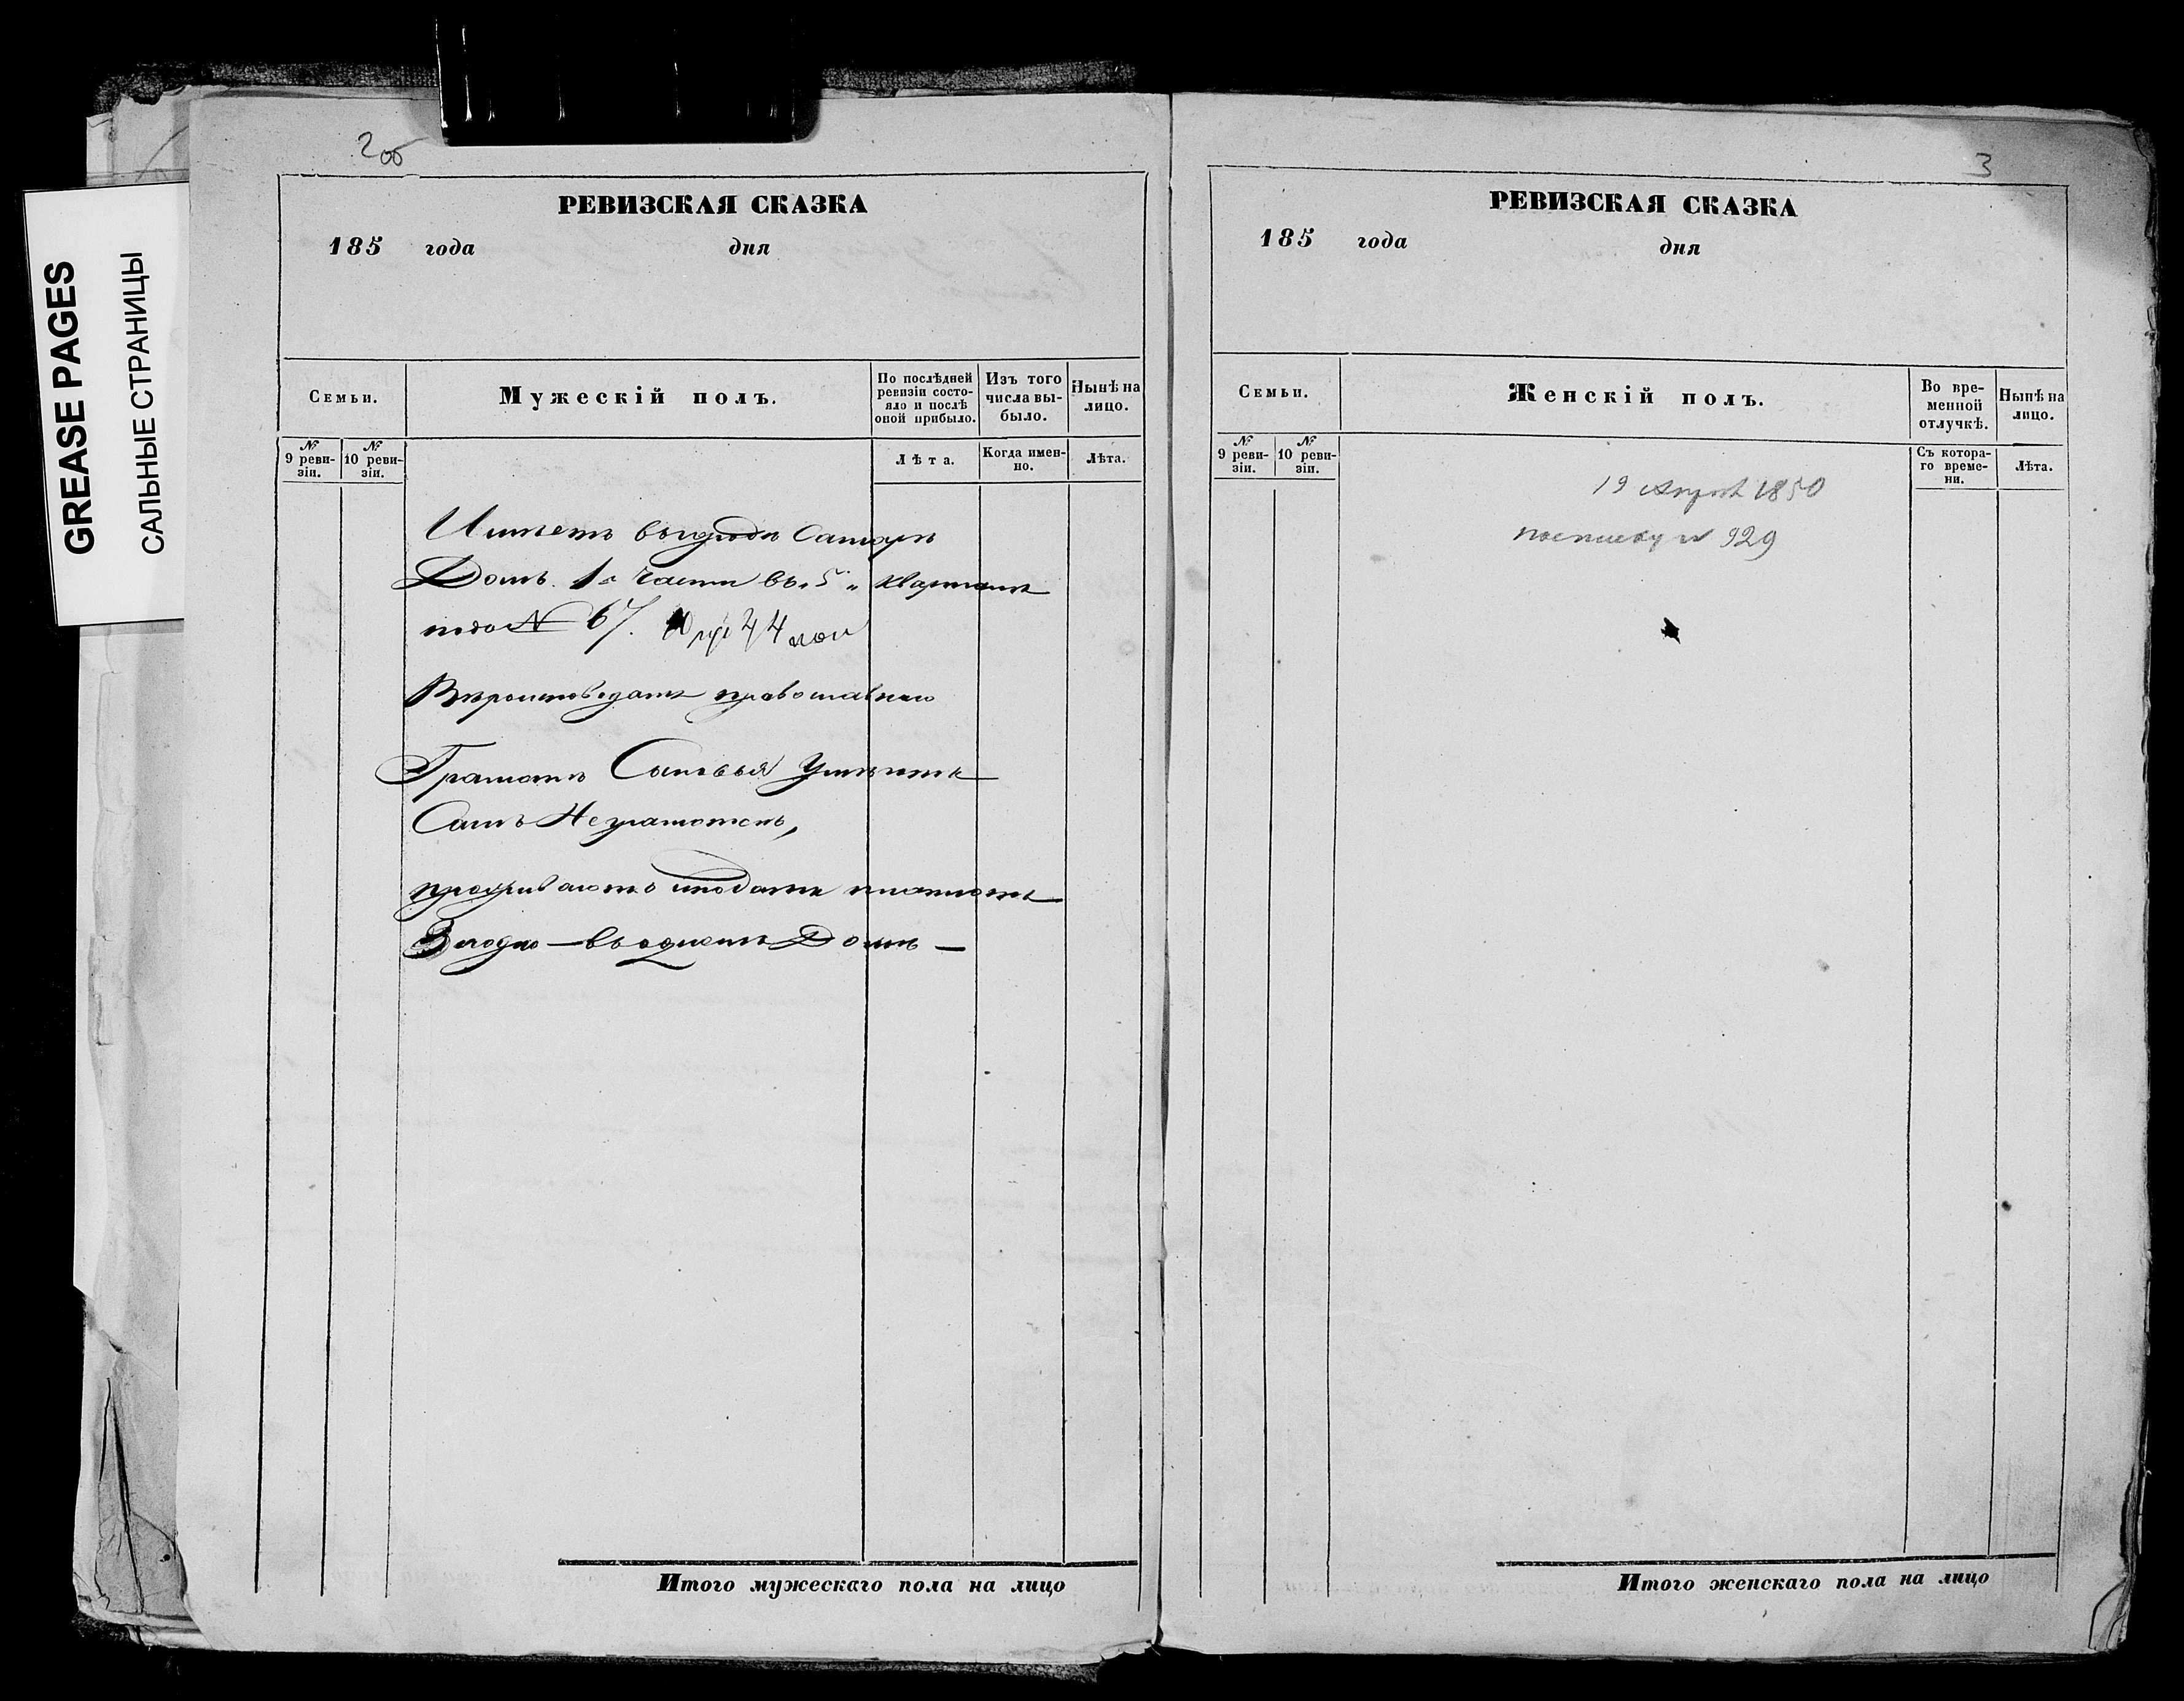 GREASE PAGES
САЛЬНЫЕ СТРАНИЦЫ
200
РЕВИЗСКАЯ СКАЗКА
185 года дня
Семьи.
Мужескій полъ.
По послѣдней ревизіи состо-
яло и послѣ
оной прибыло.
Изъ того
числа вы-
было.
Нынѣ на
лицо.
№
9 реви-
зіи.
№
10 реви-
зіи.
Лѣта.
Когда имен-
но.
Лѣта.
Имѣетъ въ городѣ Самарѣ
Домъ 1й части въ "5" кварталѣ
подъ № 67.
Вѣроисповеданія православнаго
Грамотѣ Сыновья Умѣютъ
Самъ Неграмотенъ,
подати
въ одномъ Домѣ —
Итого мужескаго пола на лицо
3
РЕВИЗСКАЯ СКАЗКА
185 года дня
Семьи.
Женскій полъ.
Во вре-
менной
отлучкѣ.
Нынѣ на
лицо.
№
9 реви-
зіи.
№
10 реви-
зіи.
Съ котора-
го време-
ни.
Лѣта.
19 1850
929
Итого женскаго пола на лицо